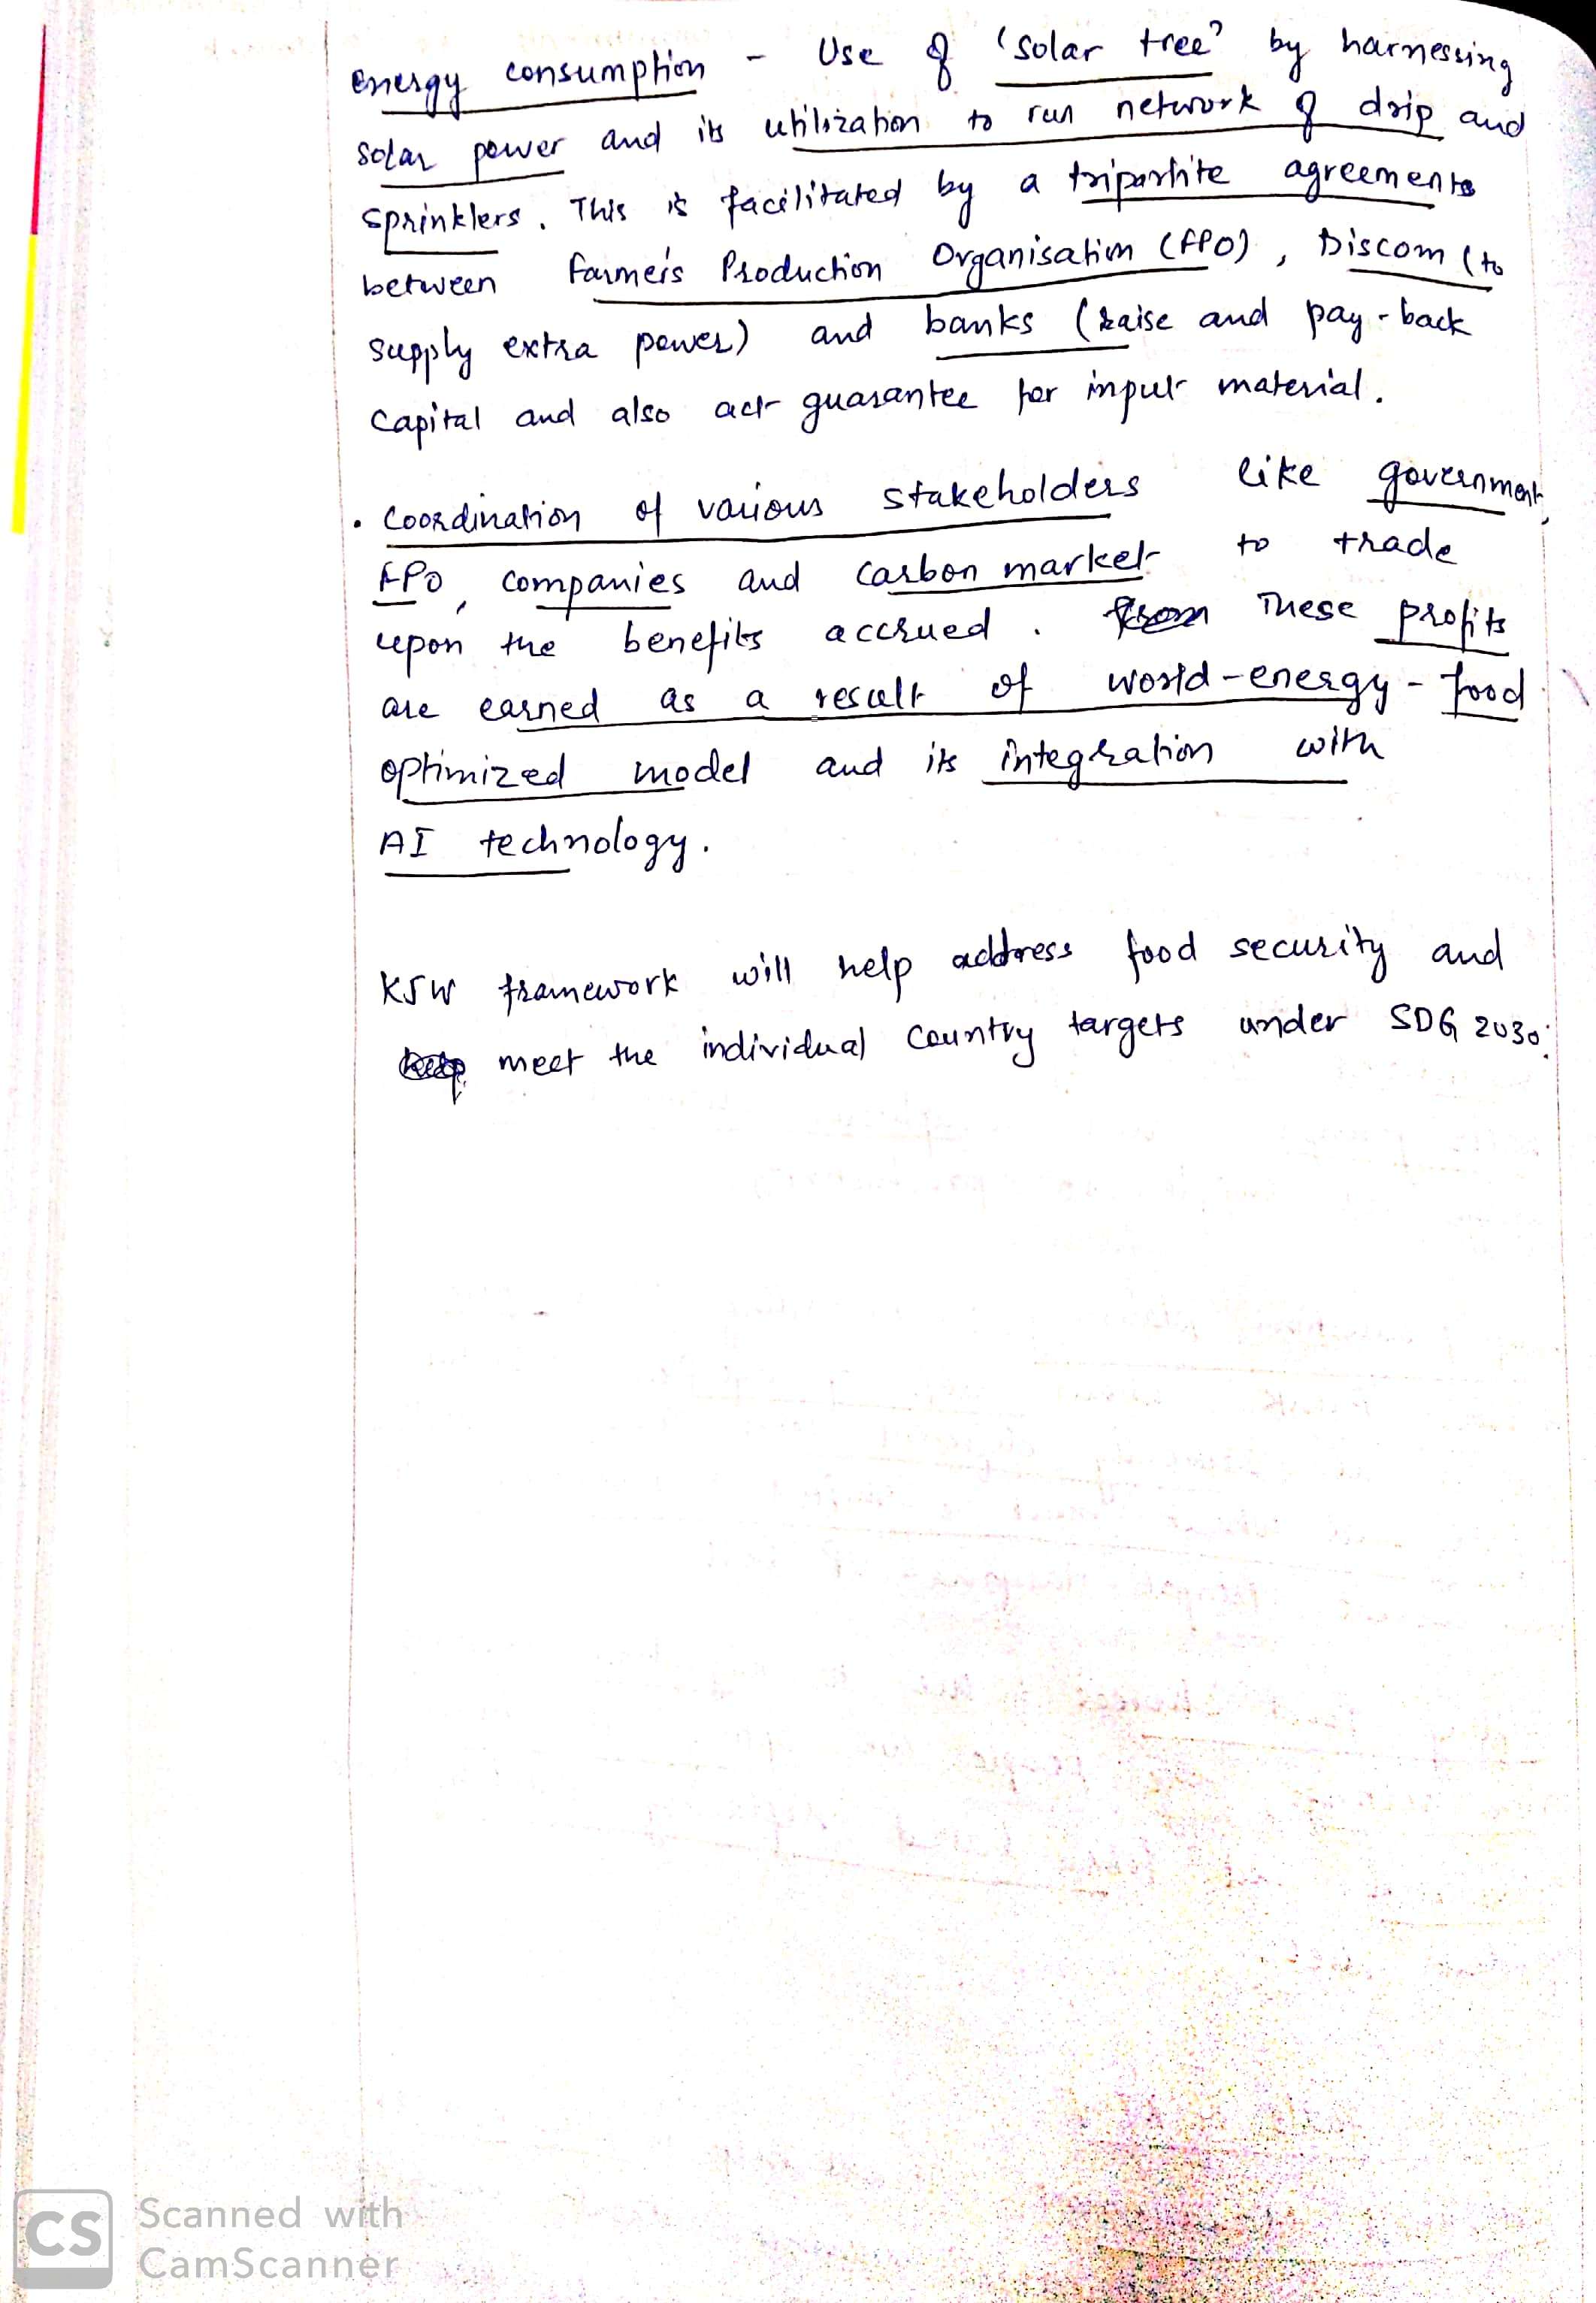 energy consumption - Use of 'solar tree' by harnessing
solar power and its utilization to run network of drip and
sprinklers. This is facilitated by a tripartite agreements
between Farmer's Production Organisation (FPO), Discom (to
supply extra power) and banks (raise and pay-back
capital and also act guarantee for input material.
• Coordination of various stakeholders like government,
FPO, companies and carbon market to trade
upon the benefits accrued. From These profits
are earned as a result of world-energy-food
optimized model and its integration with
AI technology.
KJW framework will help address food security and
help meet the individual country targets under SDG 2030.
CS Scanned with
CamScanner